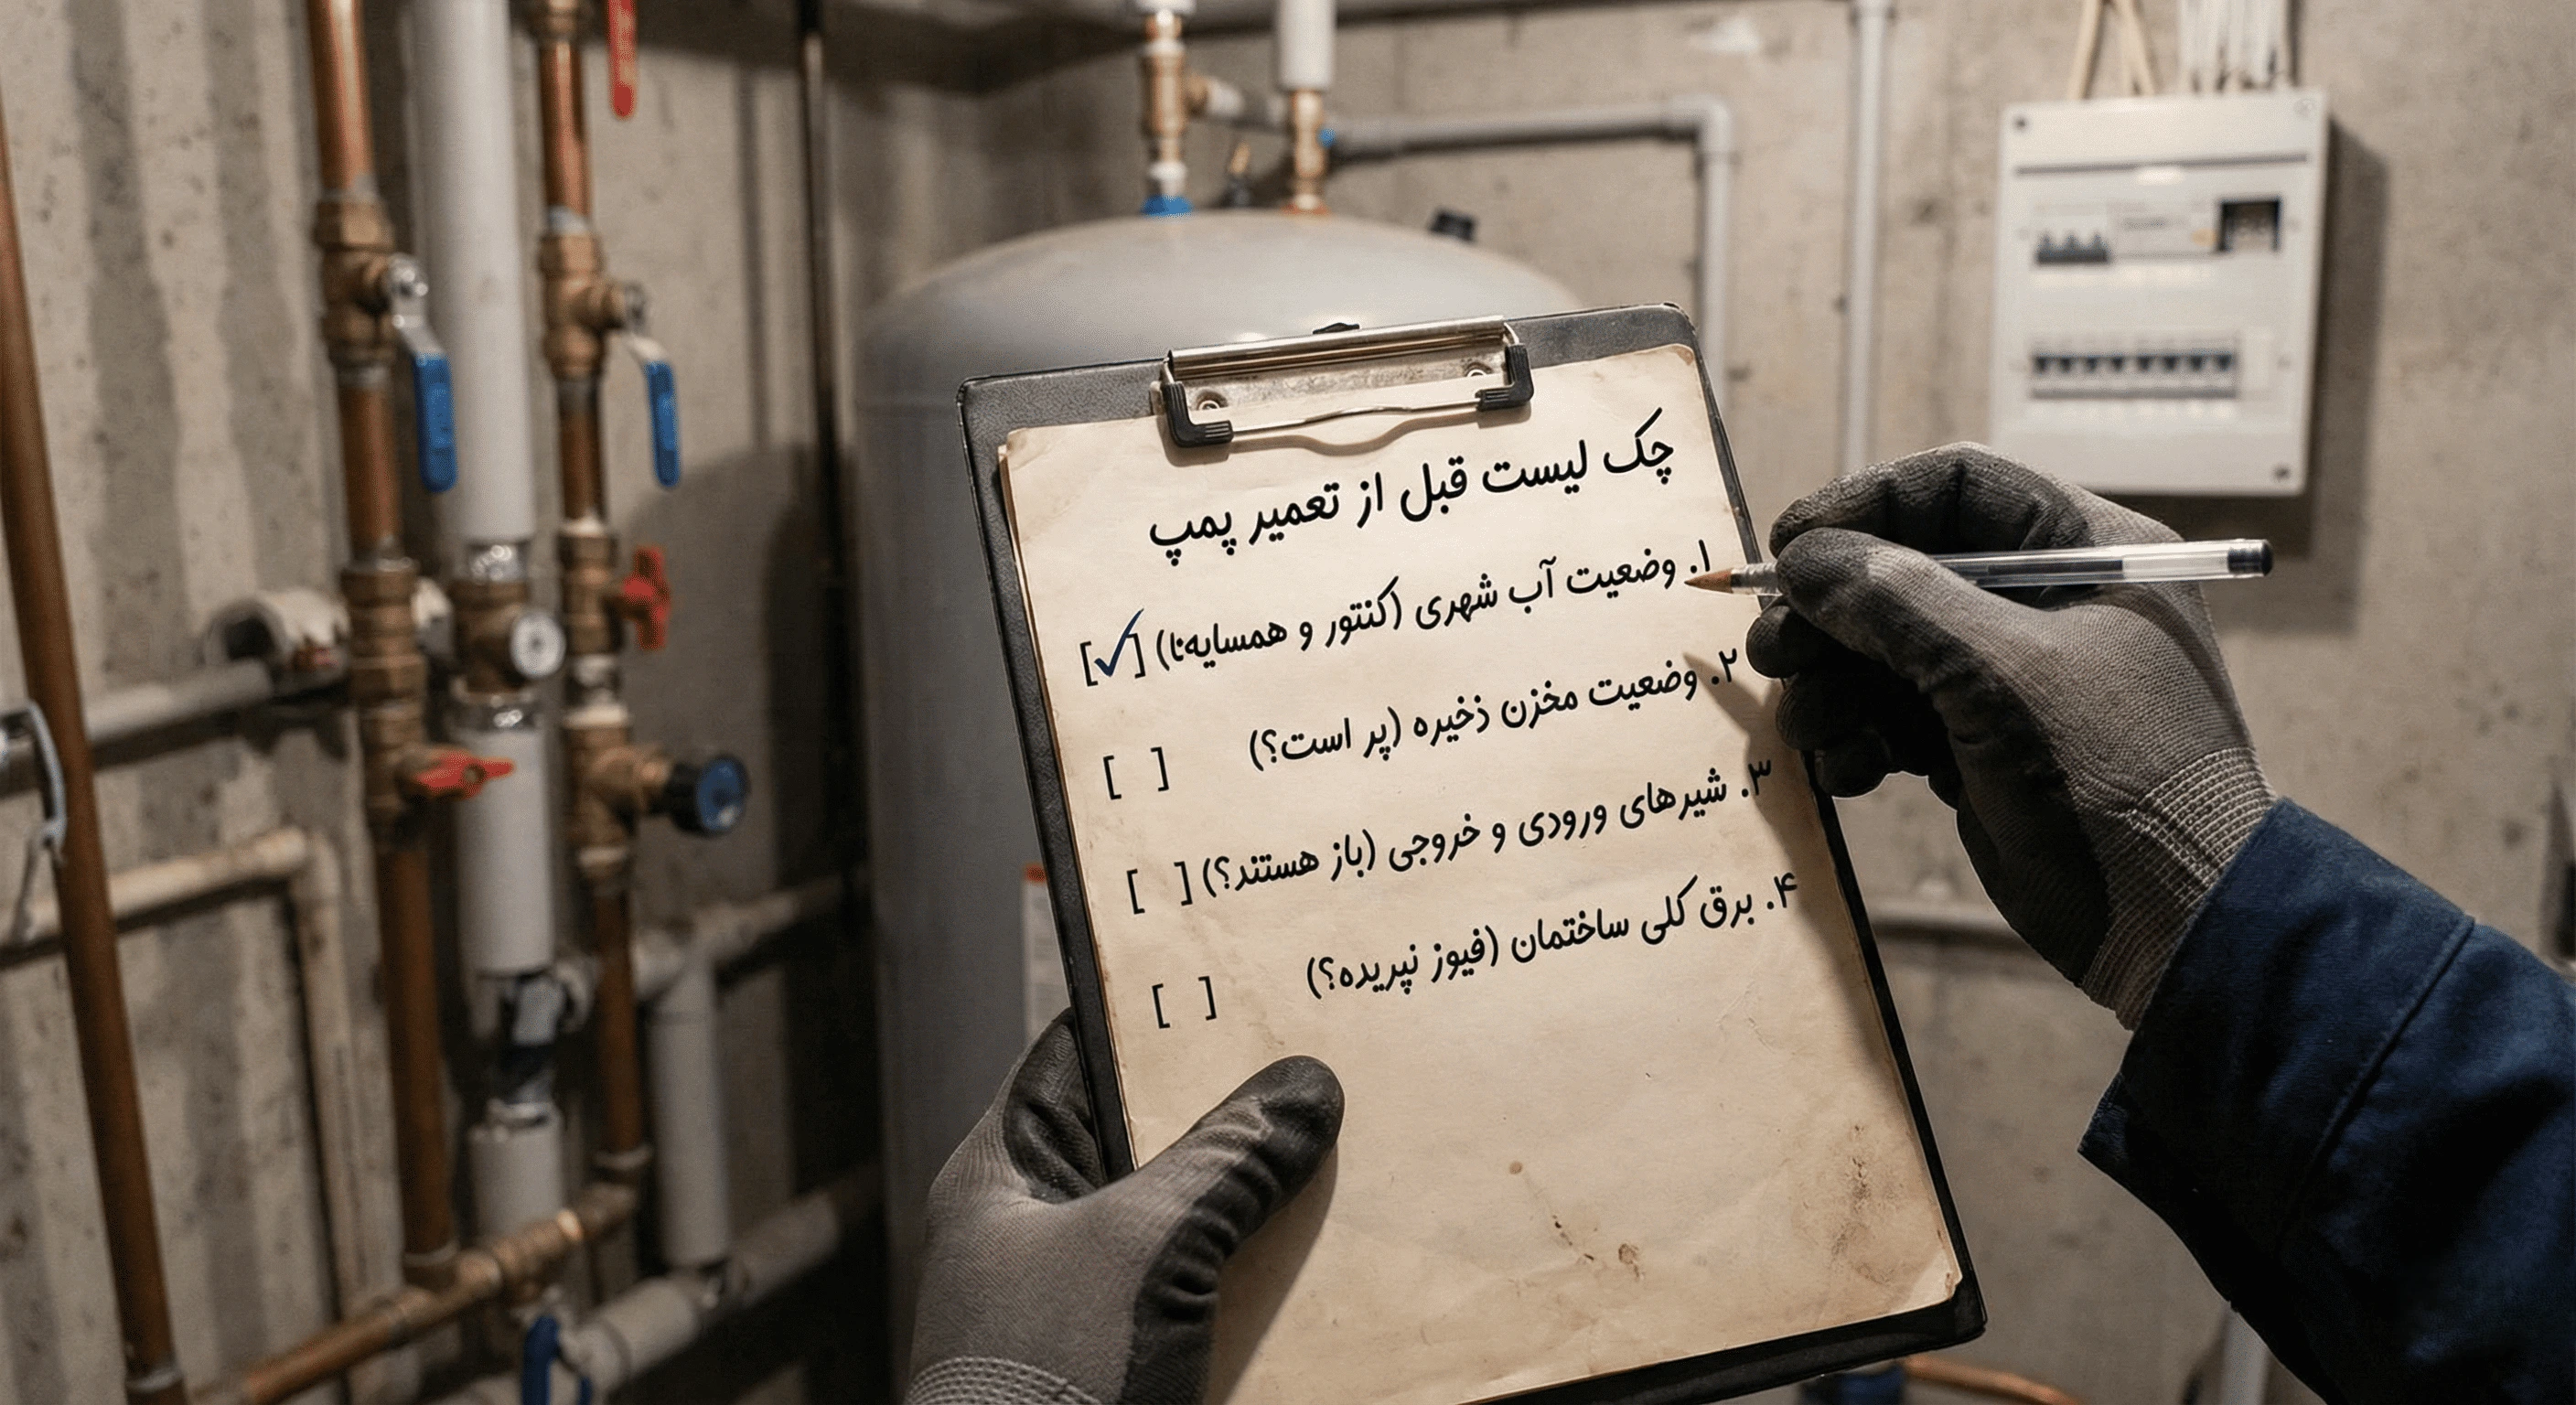 چک لیست قبل از تعمیر پمپ
۱. وضعیت آب شهری (کنتور و همسایه‌نا) [✓]
۲. وضعیت مخزن ذخیره (پر است؟) [ ]
۳. شیرهای ورودی و خروجی (باز هستند؟) [ ]
۴. برق کلی ساختمان (فیوز نپریده؟) [ ]